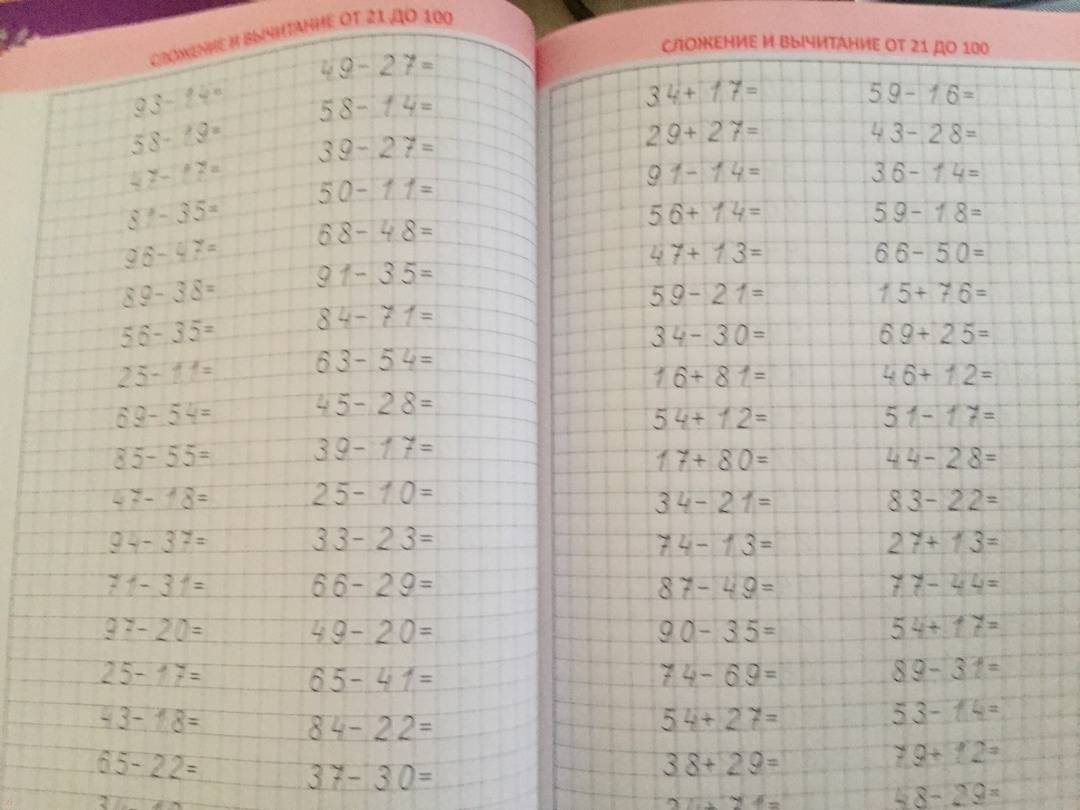 СЛОЖЕНИЕ И ВЫЧИТАНИЕ ОТ 21 ДО 100
93-14=
58-19=
47-17=
81-35=
96-47=
89-38=
56-35=
25-11=
69-54=
85-55=
47-18=
94-37=
71-31=
97-20=
25-17=
43-18=
65-22=
49-27=
58-14=
39-27=
50-11=
68-48=
91-35=
84-71=
63-54=
45-28=
39-17=
25-10=
33-23=
66-29=
49-20=
65-41=
84-22=
37-30=
СЛОЖЕНИЕ И ВЫЧИТАНИЕ ОТ 21 ДО 100
34+17=
29+27=
91-14=
56+14=
47+13=
59-21=
34-30=
16+81=
54+12=
17+80=
34-21=
74-13=
87-49=
90-35=
74-69=
54+27=
38+29=
59-16=
43-28=
36-14=
59-18=
66-50=
15+76=
69+25=
46+12=
51-17=
44-28=
83-22=
27+13=
77-44=
54+17=
89-31=
53-14=
79+12=
48-29=